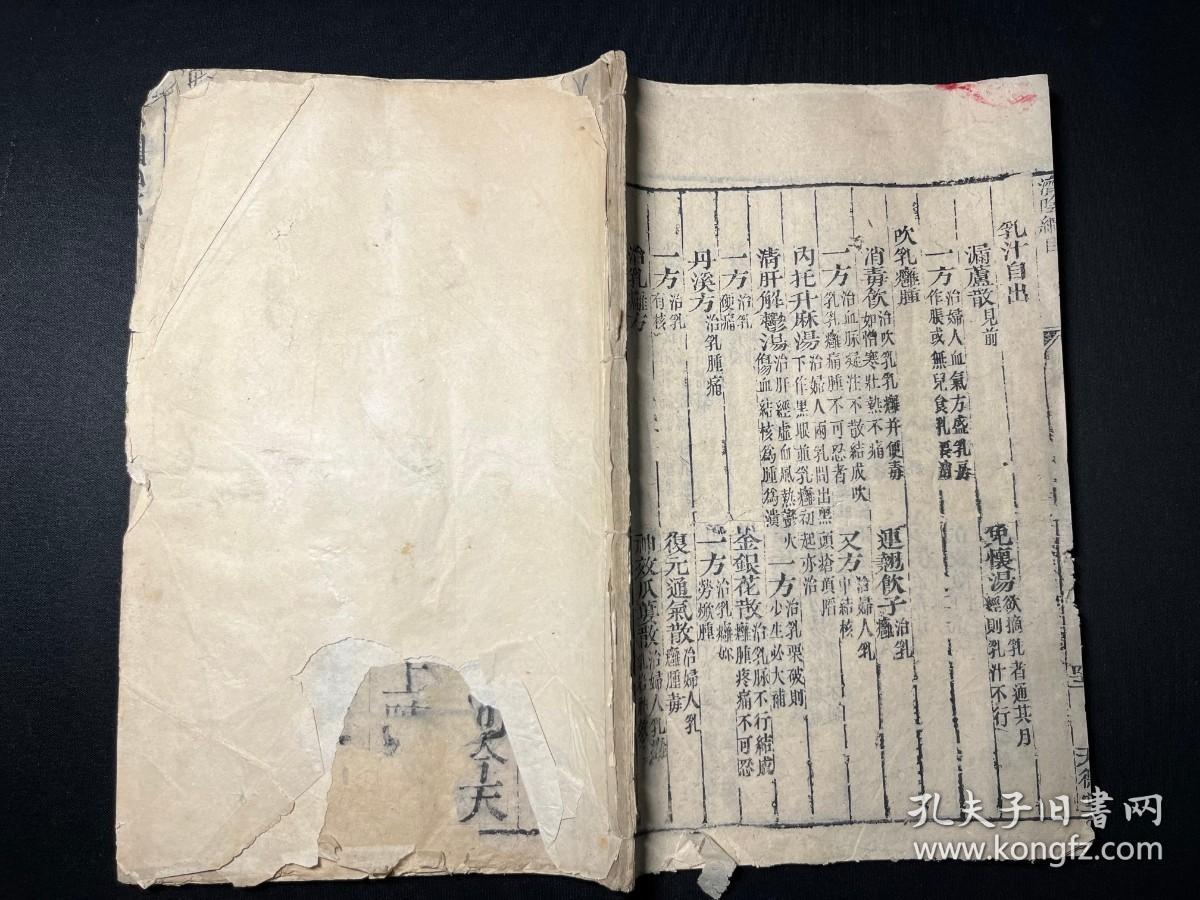 濟陰綱目
乳汁自出
漏蘆散見前
免懷湯欲摘乳者通其月
經則乳汁不行
一方治婦人血氣方盛乳房
作脹或無兒食乳
吹乳癰腫
消毒飲治吹乳乳癰并便毒
如憎寒壯熱不痛
連翹飲子治乳
癰
一方治血脉凝注不散結成吹
乳乳癰痛腫不可忍者
又方治婦人乳
中結核
內托升麻湯治婦人兩乳間出黑
頭瘡頂陷
下作黑眼並乳癰初
起亦治
清肝解鬱湯治肝經虛血風熱
火
傷血結核爲腫爲潰
一方治乳栗破則
少生必大補
一方治乳
便痛
金銀花散治乳脉不行結成
癰腫疼痛不可忍
丹溪方治乳腫痛
一方治乳癰
勞㷔腫
一方治乳
有核
復元通氣散治婦人乳
癰腫毒
治乳癰方
治婦人乳
天
上
天德堂
孔夫子旧書网
www.kongfz.com